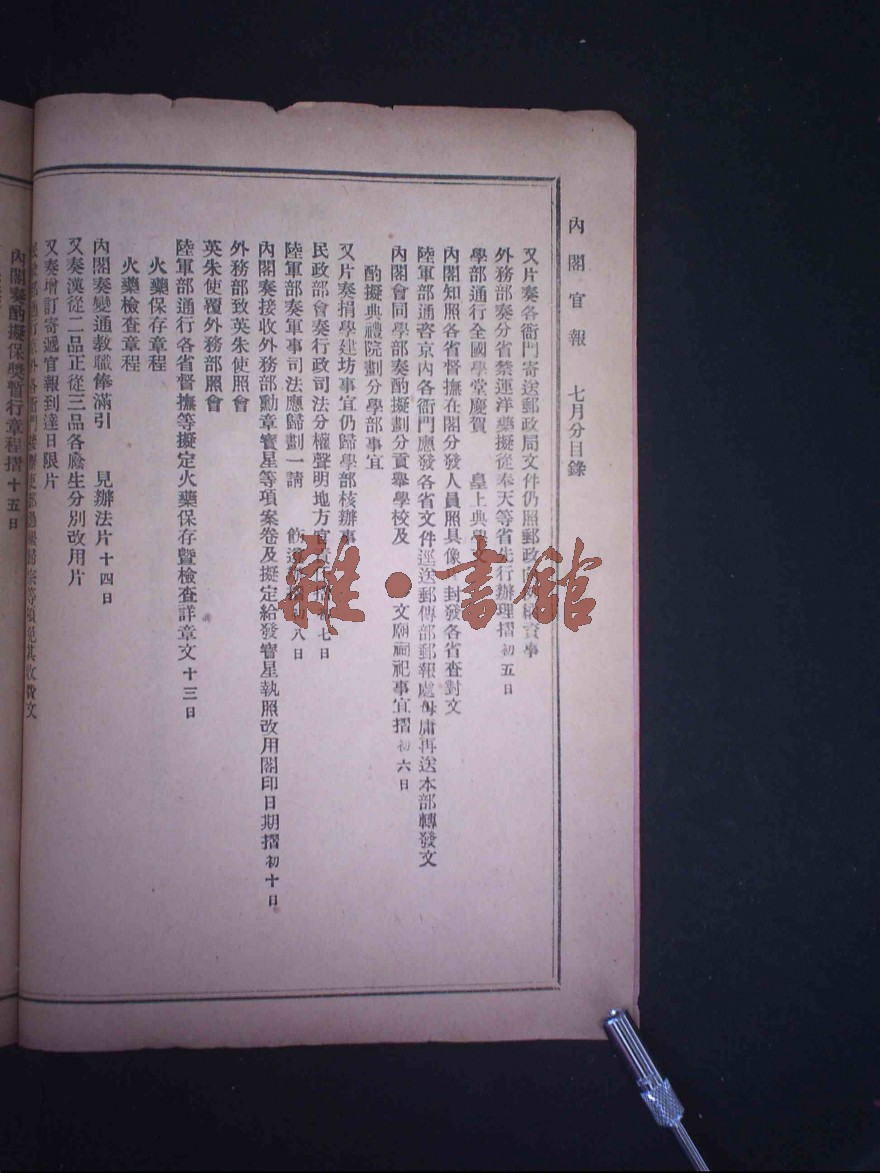 內閣官報　七月分目錄
又片奏各衙門寄送郵政局文件仍照郵政 資事
外務部奏分省禁運洋藥擬從奉天等省先行辦理摺初五日
學部通行全國學堂慶賀　皇上典學文
內閣知照各省督撫在閣分發人員照具像 封發各省查對文
陸軍部通咨京內各衙門應發各省文件逕送郵傳部郵報處毋庸再送本部轉發文
內閣會同學部奏酌擬劃分貢舉學校及　文廟祠祀事宜摺初六日
酌擬典禮院劃分學部事宜
又片奏捐學建坊事宜仍歸學部核辦事
民政部會奏行政司法分權聲明地方官 七日
陸軍部奏軍事司法應歸劃一請　飭 八日
內閣奏接收外務部勳章寶星等項案卷及擬定給發寶星執照改用閣印日期摺初十日
外務部致英朱使照會
英朱使覆外務部照會
陸軍部通行各省督撫等擬定火藥保存暨檢查詳章文十三日
火藥保存章程
火藥檢查章程
內閣奏變通教職俸滿引　見辦法片十四日
又奏漢從二品正從三品各廕生分別改用片
又奏增訂寄遞官報到達日限片
收費文
內閣奏酌擬保獎暫行章程摺十五日
雜·書館